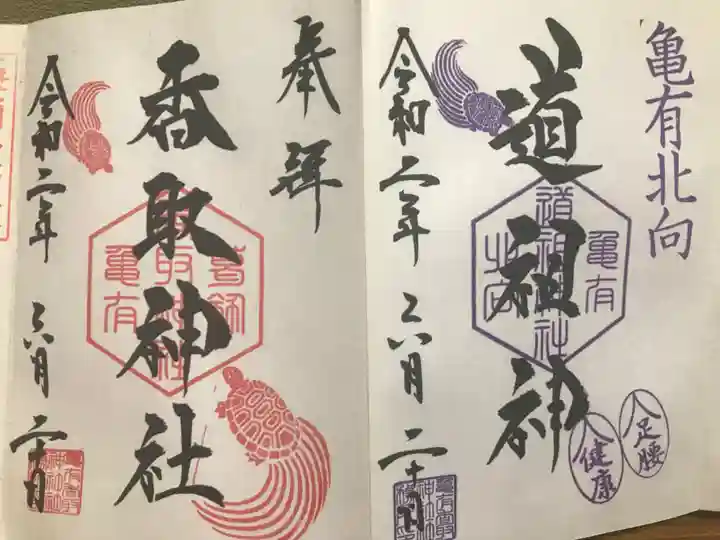 亀有北向
道祖神
亀有
道祖神社
北向
令和二年 六月 二十日
足腰
健康
奉拝
香取神社
葛飾
香取神社
亀有
令和二年 六月 二十日